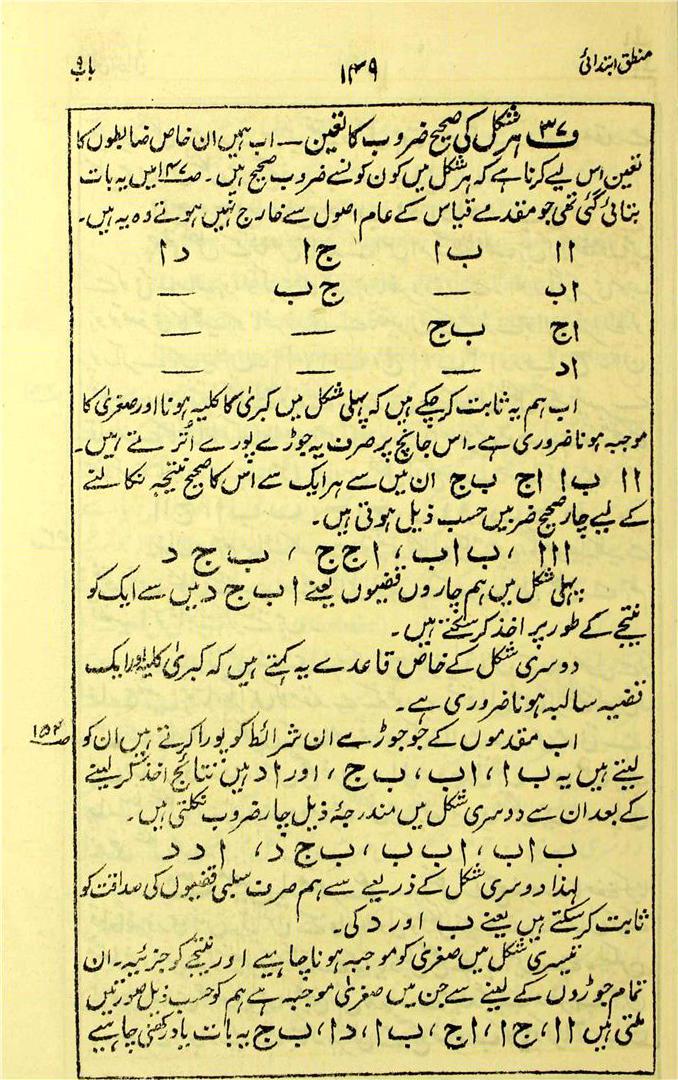 منطق ابتدائی ۱۴۹ باب ۹
ف۳۷ ہر شکل کی صحیح ضروب کا تعین ــ اب ہمیں ان خاص ضابطوں کا
تعین اس لیے کرنا ہے کہ ہر شکل میں کون کونسے ضروب صحیح ہیں۔ ص۱۴۷ میں یہ بات
بتائی گئی تھی جو مقدمے قیاس کے عام اصول سے خارج نہیں ہوتے وہ یہ ہیں۔
اا ب ا ج ا د ا
اب — ج ب —
اج ب ج — —
اد — — —
اب ہم یہ ثابت کر چکے ہیں کہ پہلی شکل میں کبریٰ کا کلیہ ہونا اور صغریٰ کا
موجبہ ہونا ضروری ہے۔ اس جانچ پر صرف یہ جوڑے پورے اُترتے ہیں۔
اا ب ا اج ب ج ان میں سے ہر ایک سے اس کا صحیح نتیجہ نکالنے
کے لیے چار صحیح ضربیں حسب ذیل ہوتی ہیں۔
ااا ، ب اب ، اج ج ، ب ج د
پہلی شکل میں ہم چاروں قضیوں یعنے ا ب ج د میں سے ایک کو
نتیجے کے طور پر اخذ کر سکتے ہیں۔
دوسری شکل کے خاص قاعدے یہ کہتے ہیں کہ کبریٰ کلیہ اور ایک
قضیہ سالبہ ہونا ضروری ہے۔
اب مقدموں کے جو جوڑے ان شرائط کو پورا کرتے ہیں ان کو
ص۱۵۲
لیتے ہیں یہ ب ا ، اب ، ب ج ، اور اد ہیں نتائج اخذ کر لینے
کے بعد ان سے دوسری شکل میں مندرجۂ ذیل چار ضروب نکلتی ہیں۔
ب اب ، اب ب ، ب ج د ، ا د د
لہذا دوسری شکل کے ذریعے سے ہم صرف سلبی قضیوں کی صداقت کو
ثابت کر سکتے ہیں یعنے ب اور د کی۔
تیسری شکل میں صغریٰ کو موجبہ ہونا چاہیے اور نتیجے کو جزئیہ۔ ان
تمام جوڑوں کے لینے سے جن میں صغریٰ موجبہ ہے ہم کو حسب ذیل صورتیں
ملتی ہیں اا ، ج ا ، اج ، ب ا ، د ا ، ب ج یہ بات یاد رکھنی چاہیے